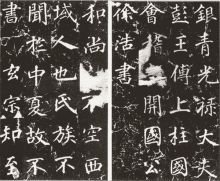 銀青光祿大夫
彭王傅上柱國
會稽開國公
徐浩書
和尚不空西
域人也氏族不
聞於中夏故不
書玄宗知至